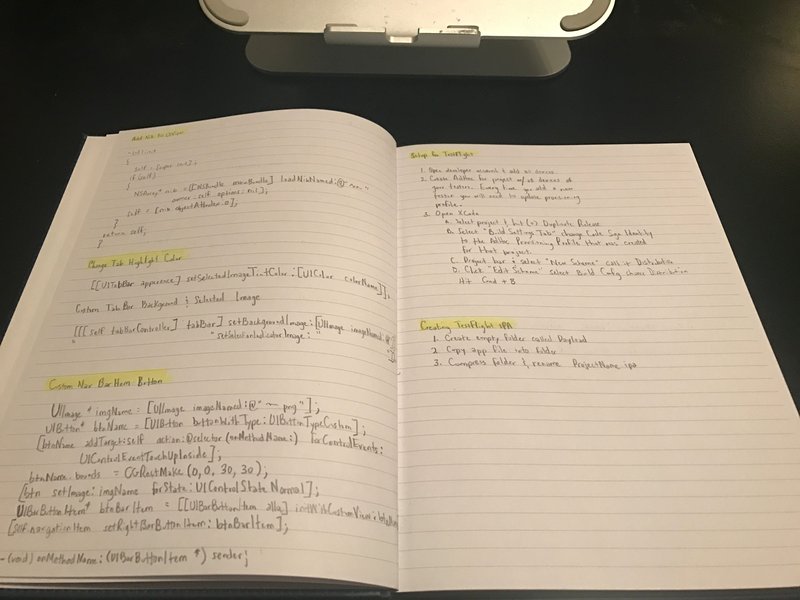 Add Nib for UIView
-(id) init
{
self = [super init];
if (self)
{
NSArray* nib = [[NSBundle mainBundle] loadNibNamed:@"~~"
owner:self options:nil];
self = [nib objectAtIndex:0];
}
return self;
}
Change Tab Highlight Color
[[UITabBar apperence] setSelectedImageTintColor:[UIColor colorName]];
Custom Tab Bar Background & Selected Image
[[[self tabBarController] tabBar] setBackgroundImage:[UIImage imageNamed:@
" "
Custom Nav Bar Item Button
UIImage * imgName = [UIImage imageNamed:@"~ png"];
UIButton* btnName = [UIButton buttonWithType:UIButtonTypeCustom];
[btnName addTarget:self action:@selector(onMethodName:) forControlEvents:
UIControlEventTouchUpInside];
btnName.bounds = CGRectMake(0,0,30,30);
[btn setImage:imgName forState:UIControlStateNormal];
UIBarButtonItem* btnBarItem = [[UIBarButtonItem alloc] initWithCustomView:
[self.navigationItem setRightBarButtonItem:btnBarItem];
-(void) onMethodName:(UIBarButtonItem *) sender;
Setup for TestFlight
1. Open developer account & add as devices.
2. Create AdHoc for project w/ all devices of
your testers. Every time you add a new
tester you will need to update provisioning
profile.
3. Open XCode
A. Select project & hit (+) Duplicate Release
B. Select "Build Settings Tab" change Code Sign Identity
to the AdHoc Provisioning Profile that was created
for that project.
C. Project bar & select "New Scheme" call it Distribution
D. Click "Edit Scheme" select Build Config choose Distribution
Hit Cmd + B
Creating TestFlight IPA
1. Create empty folder called Payload
2. Copy app file into folder
3. Compress folder & rename ProjectName ipa